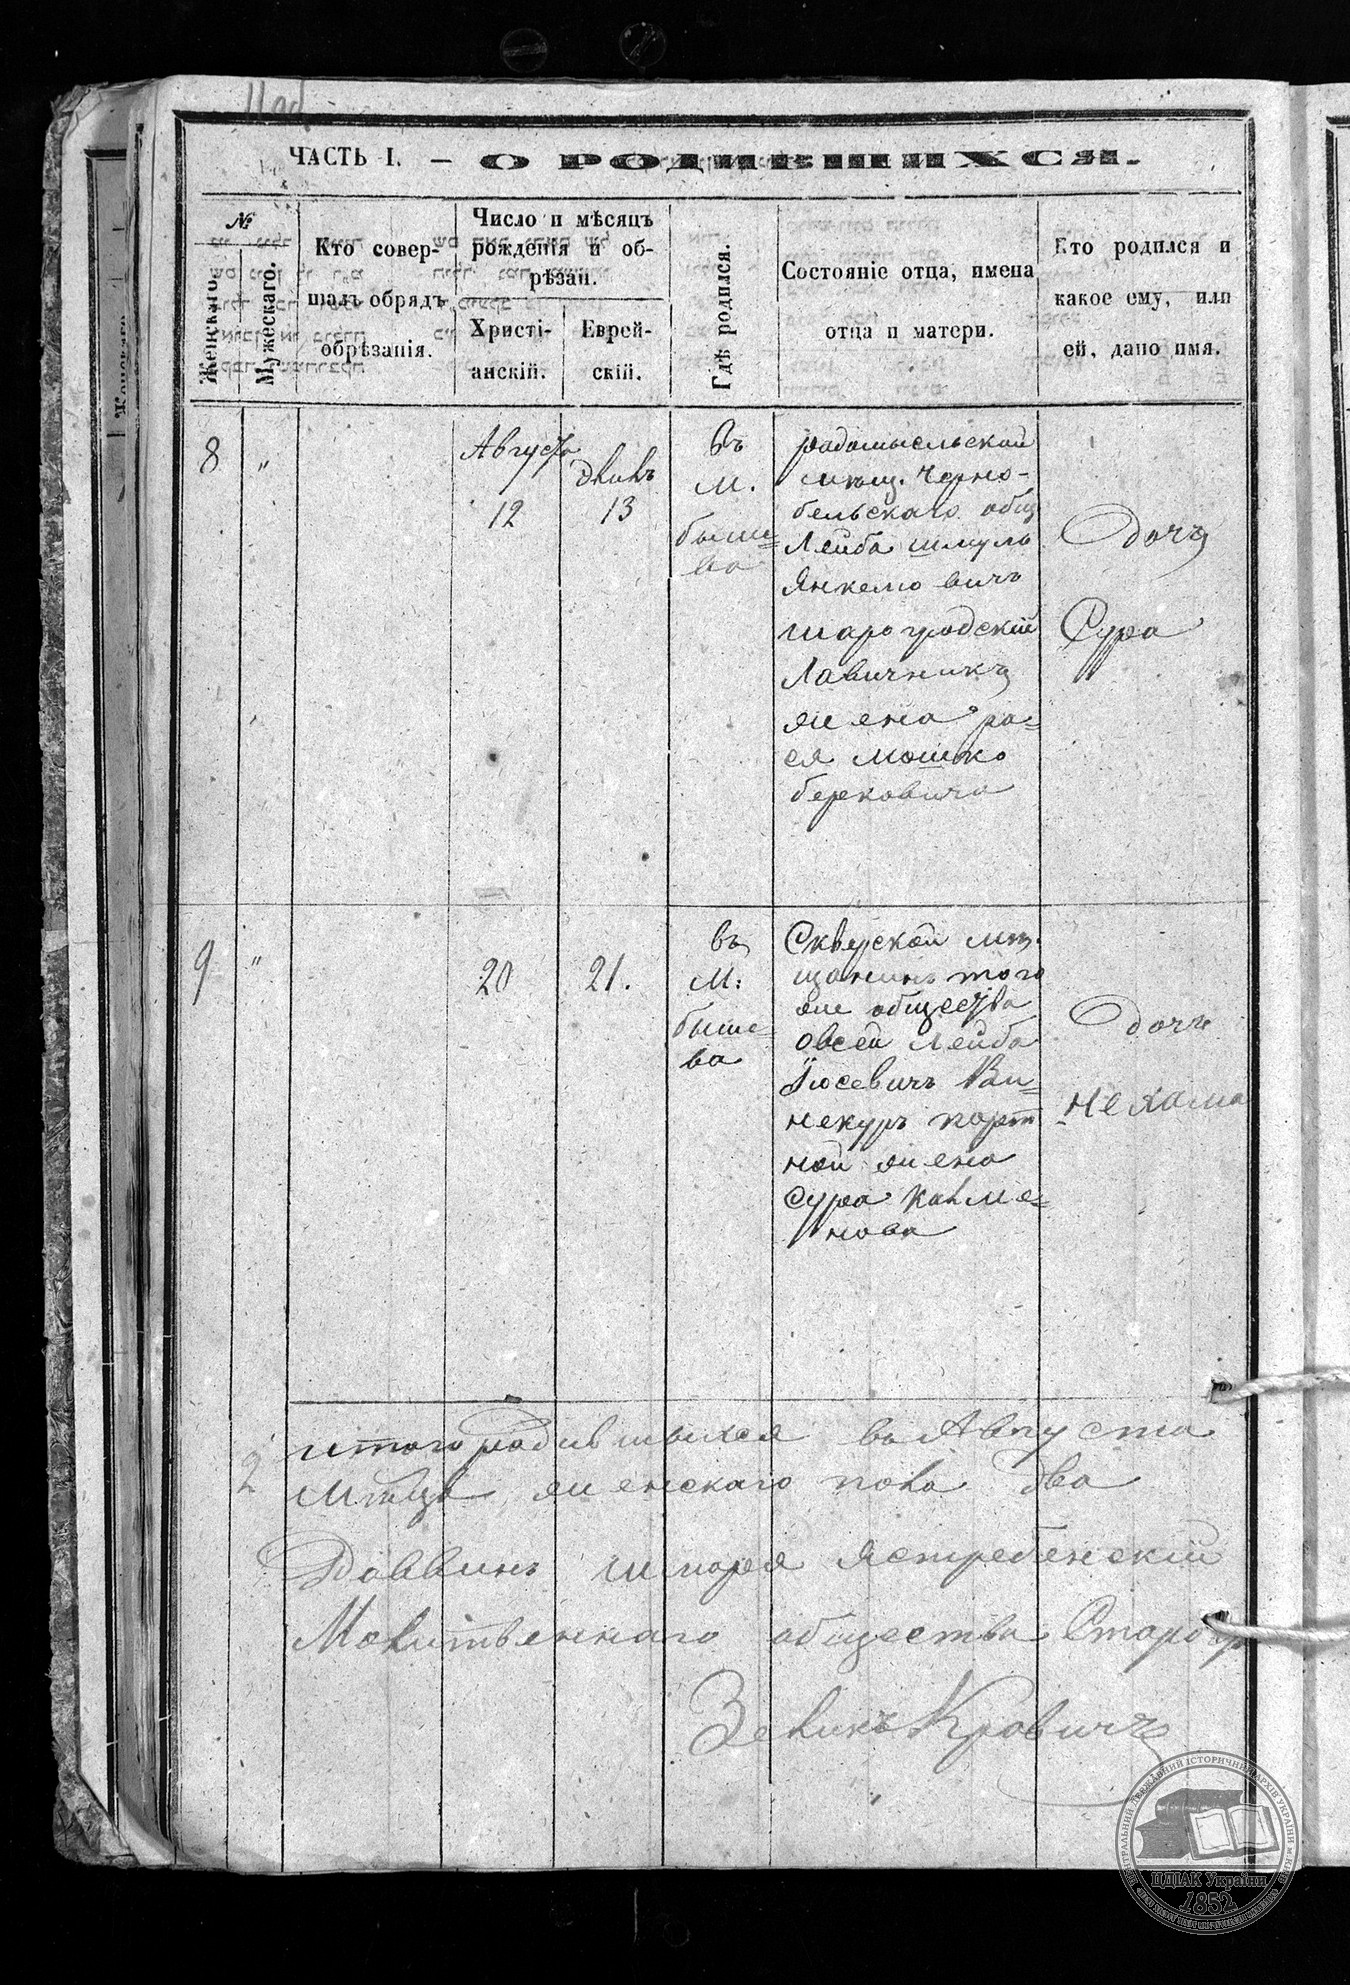 ЧАСТЬ I. — О РОДИВШИХСЯ.
№
Женскаго.
Мужескаго.
Кто совер-
шалъ обрядъ
обрѣзанія.
Число и мѣсяцъ
рожденія и об-
рѣзан.
Христі-
анскій.
Еврей-
скій.
Гдѣ родился.
Состояніе отца, имена
отца и матери.
Кто родился и
какое ему, или
ей, дано имя.
8
"
Августа
12
13
Въ
м.
быше=
ва
радомысльской
мѣщ. Черно-
бельскаго общ
Лейба шмуль
Янкелю вичъ
шаро гродскій
Лавичникъ
жена ра=
ся мошко
беркавича
Дочь
Сура
9
"
20
21.
въ
м:
быше=
ва
Сквирской мѣ-
щанинъ того
же общества
овсей Лейба
Іосевичъ Ви=
некуръ порт
ной жена
Сура Калме=
нова
Дочь
Нехама
2
итого родившихся въ Августа
мѣсца женскаго пола два
Раввинъ шморя Ястребенскій
Молитвеннаго общества Старо
Зеликъ Кровичъ
ЦЕНТРАЛЬНИЙ ДЕРЖАВНИЙ ІСТОРИЧНИЙ АРХІВ УКРАЇНИ М. КИЇВ
ЦДІАК України
1852